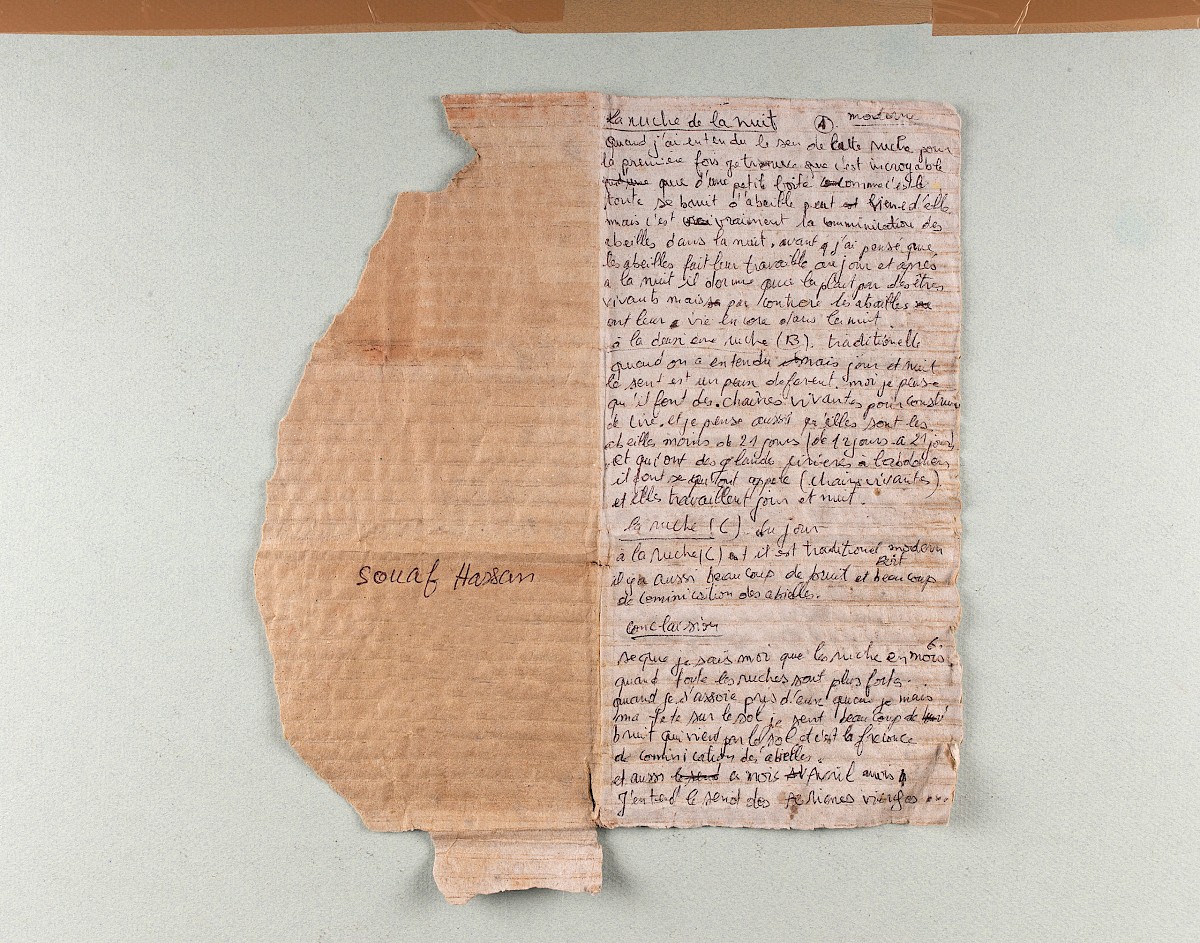 Souaf Hassan
la ruche de la nuit (A). moderne
quand j'ai entendu le sen de cette ruche pour
la première fois je trouve que c'est incroyable
que d'une petite boite comme c'est le
toute se bruit d'abeille peut vienne d'elle
mais c'est vraiment la comminication des
abeilles dans la nuit. avant j'ai pensé que
les abeilles fait leur travaille au jour et après
a la nuit il dorme que la plait par des êtres
vivants mais par contrere les abailles
ont leur vie encore dans la nuit.
à la deusieme ruche (B). traditionelle
quand on a entendu mais jour et nuit
le sent est un peux deferent. moi je pense
qu'il font des chaines vivantes pour construir
de cire. et je pense aussi qu'elles sont les
abeilles moins de 21 jours (de 12 jours a 21 jours
et qui ont des glandes cirieres à l'abdomens
il font se appele (chaines vivantes)
et elles travaillent jour et nuit.
la ruche (C). du jour
à la ruche (C) il est traditionel modern
il ya aussi beaucoup de bruit et beaucoup
de cominication des abielles.
conclussion
se que je sais moi que les ruche en mois 6.
quand toute les ruches sont plus forte..
quand je s'assoie pres d'eux quan je mais
ma tete sur le sol je sent beaucoup de
bruit qui vient par le sol c'est la
de comminication des abielles.
et aussi a mois Avril
J'entend le send des vierges ...